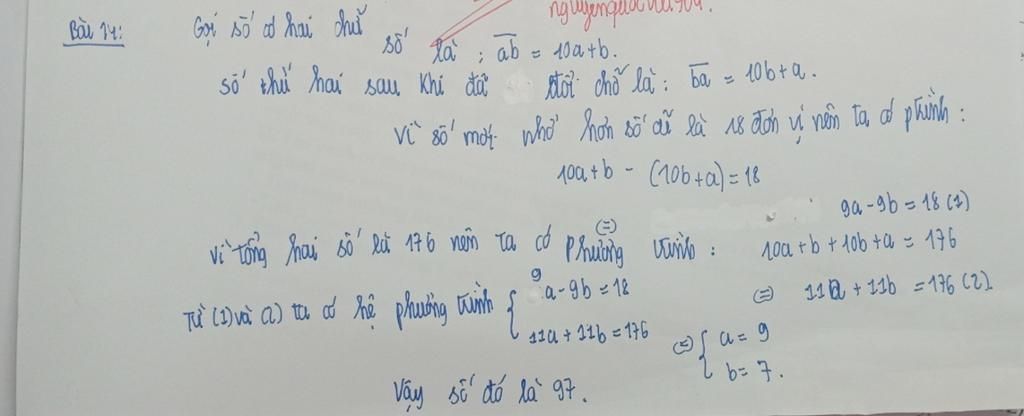 Bài 14:
Gọi số có hai chữ số là : ab = 10a+b.
số thứ hai sau khi đã đổi chỗ là : ba = 10b+a.
Vì số mới nhỏ hơn số cũ là 18 đơn vị nên ta có ptrình :
10a+b - (10b+a) = 18
(=) 9a-9b = 18 (1)
Vì tổng hai số là 176 nên ta có phương trình : 10a+b+10b+a = 176
(=) 11a + 11b = 176 (2).
Từ (1) và (2) ta có hệ phương trình { 9a-9b = 18
11a+11b = 176
(=) { a = 9
b = 7.
Vậy số đó là 97.